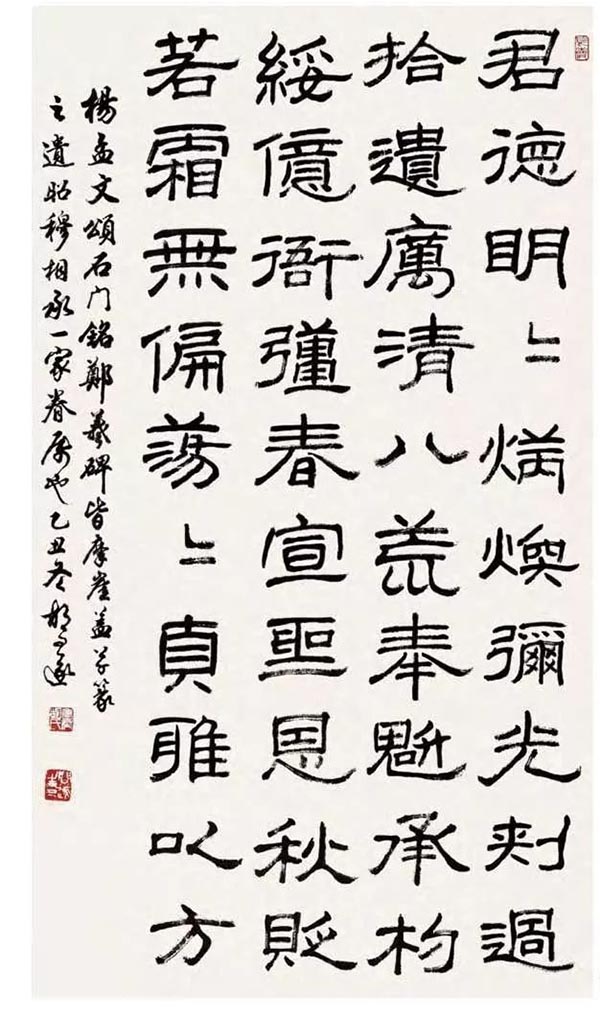 君德明〻炳煥彌光刺過
拾遺厲清八荒奉魁承杓
綏億衙彊春宣聖恩秋貶
若霜無偏蕩〻貞雅以方
楊孟文頌石门銘鄭羲碑皆摩崖蓋草篆
之遺昭穆相承一家眷属也乙丑冬胡问遂